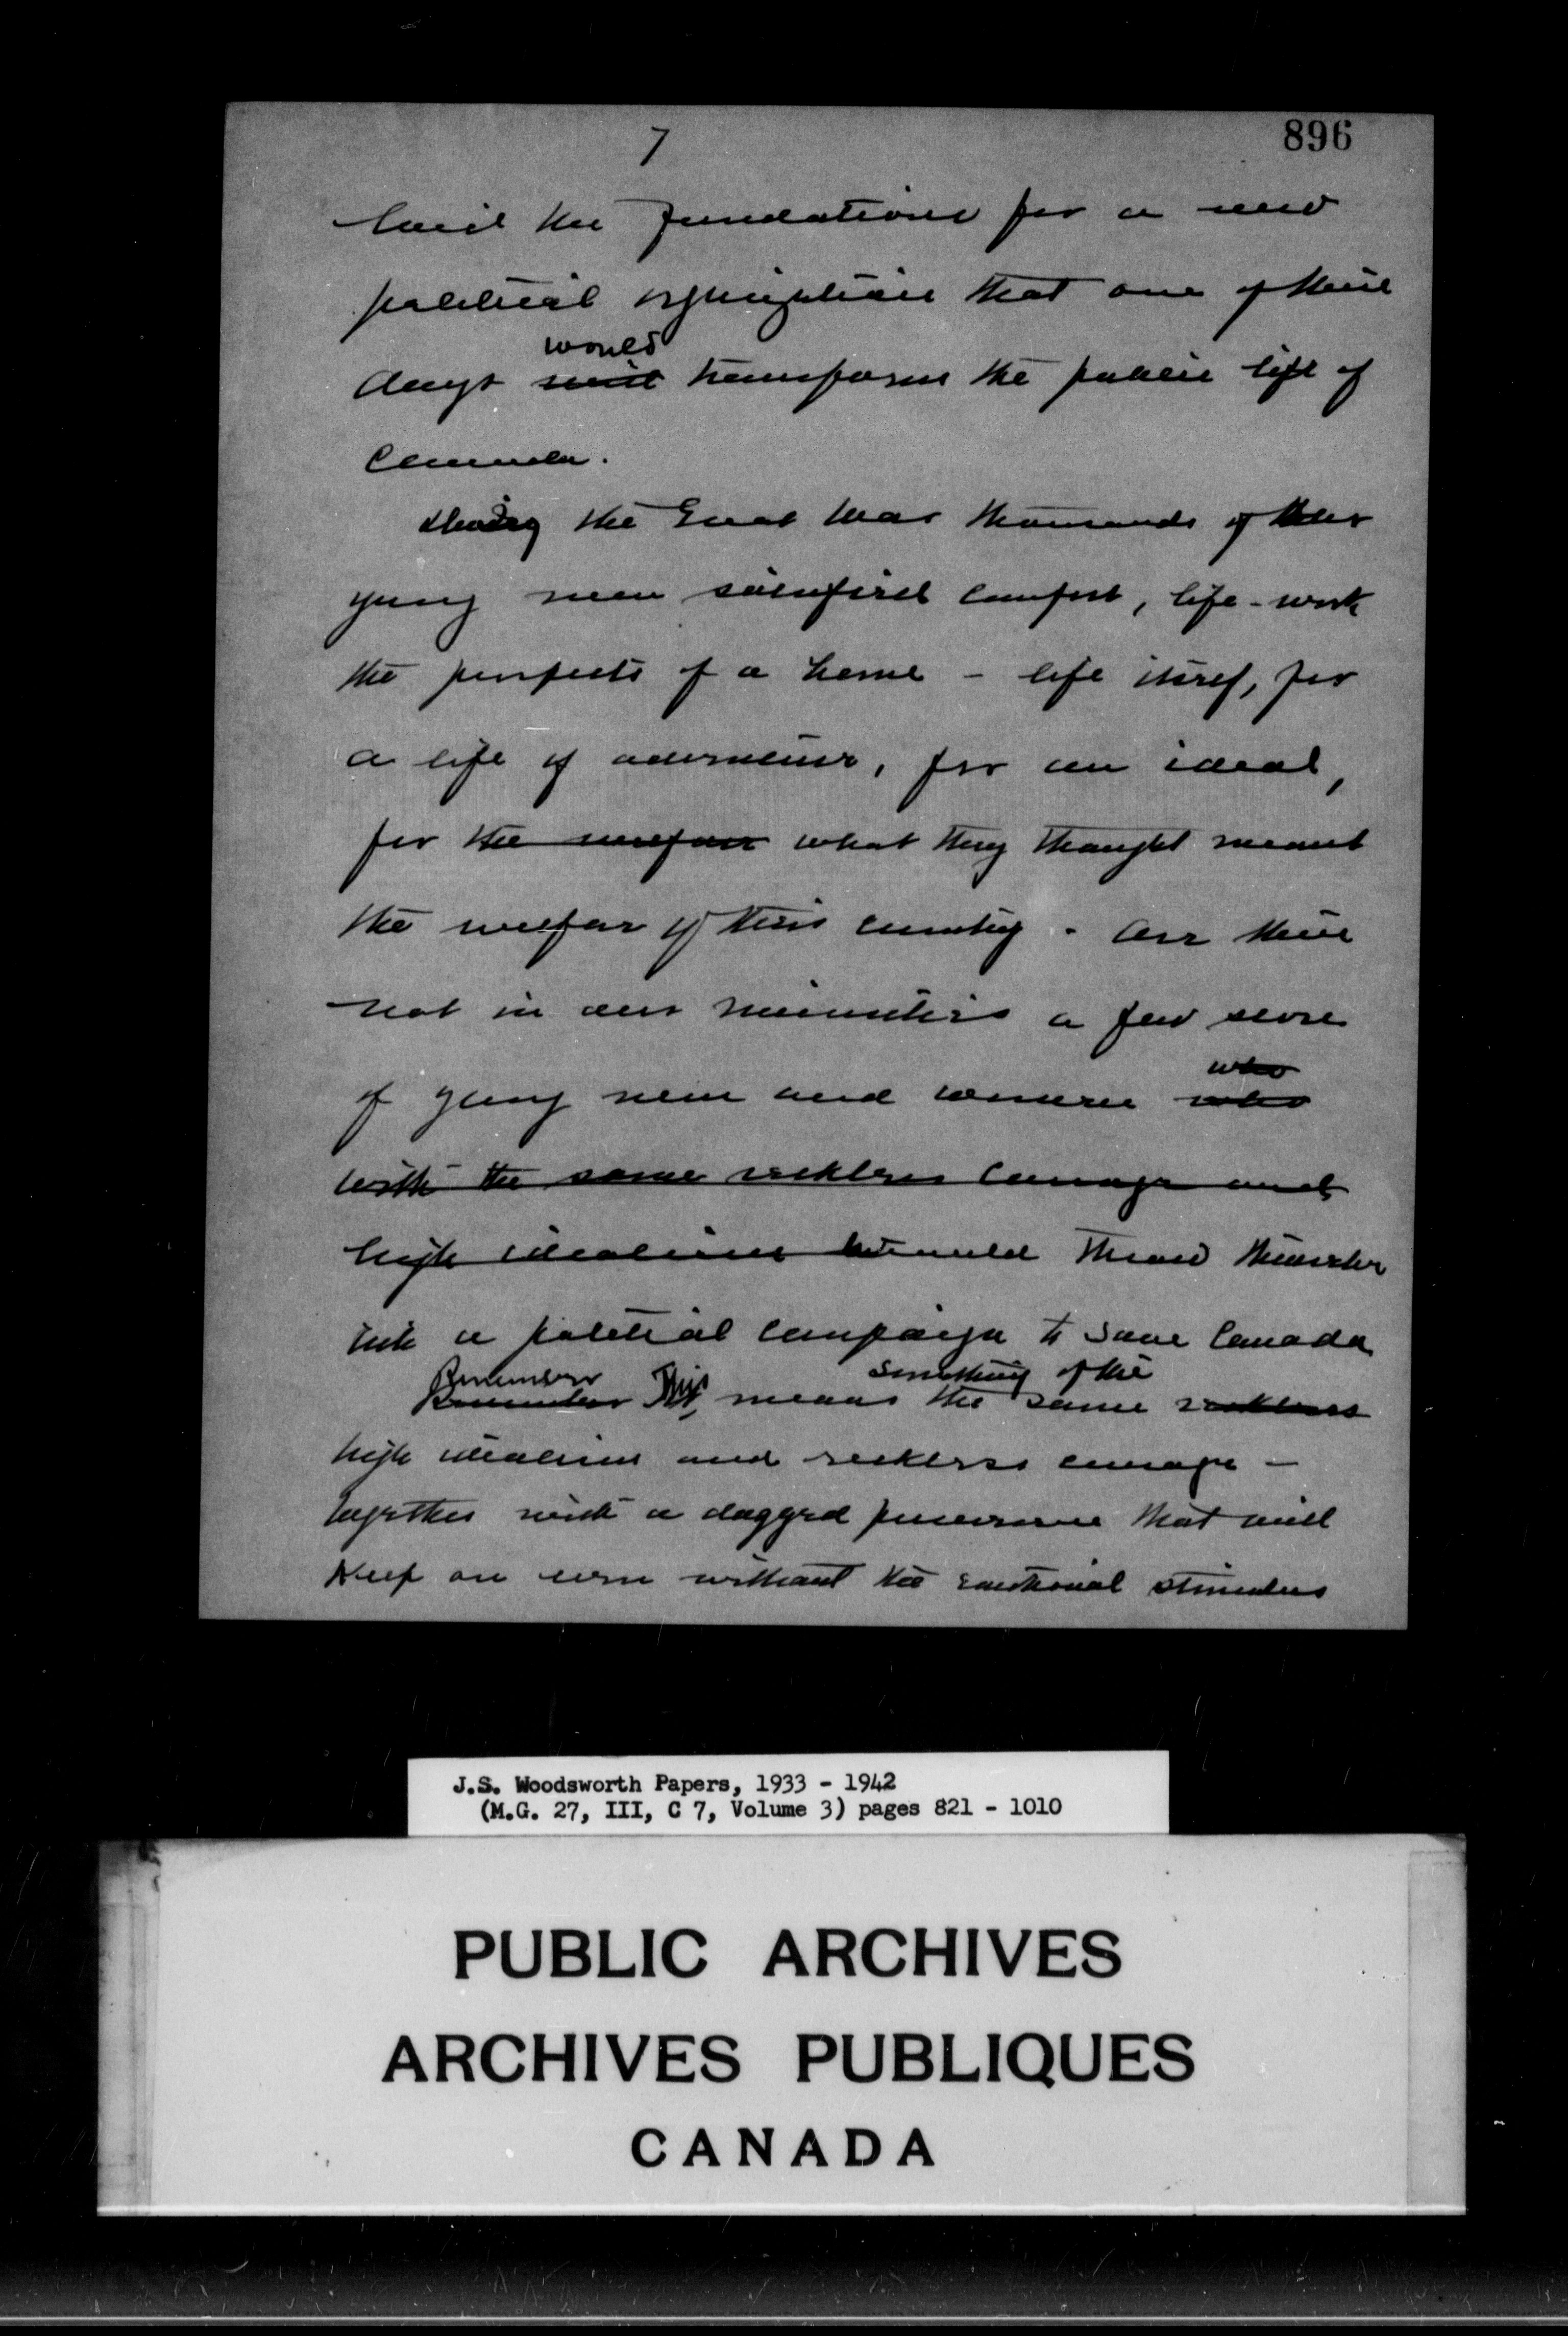 7
896
laid the foundations for a new
political organization that one of these
would
days will transform the public life of
Canada.
During the Great War thousands of our
young men sacrificed comfort, life-work
the prospects of a home - life itself, for
a life of adventure, for an ideal,
for the welfare what they thought meant
the welfare of their country. Are there
not in our ministers a few score
who
of young men and women who
with the same reckless courage and
high idealism would throw themselves
into a political campaign to save Canada
Remember something of the
Remember This means the same reckless
high idealism and reckless courage -
together with a dogged perseverance that will
keep on even without the emotional stimulus
J.S. Woodsworth Papers, 1933 - 1942
(M.G. 27, III, C 7, Volume 3) pages 821 - 1010
PUBLIC ARCHIVES
ARCHIVES PUBLIQUES
CANADA